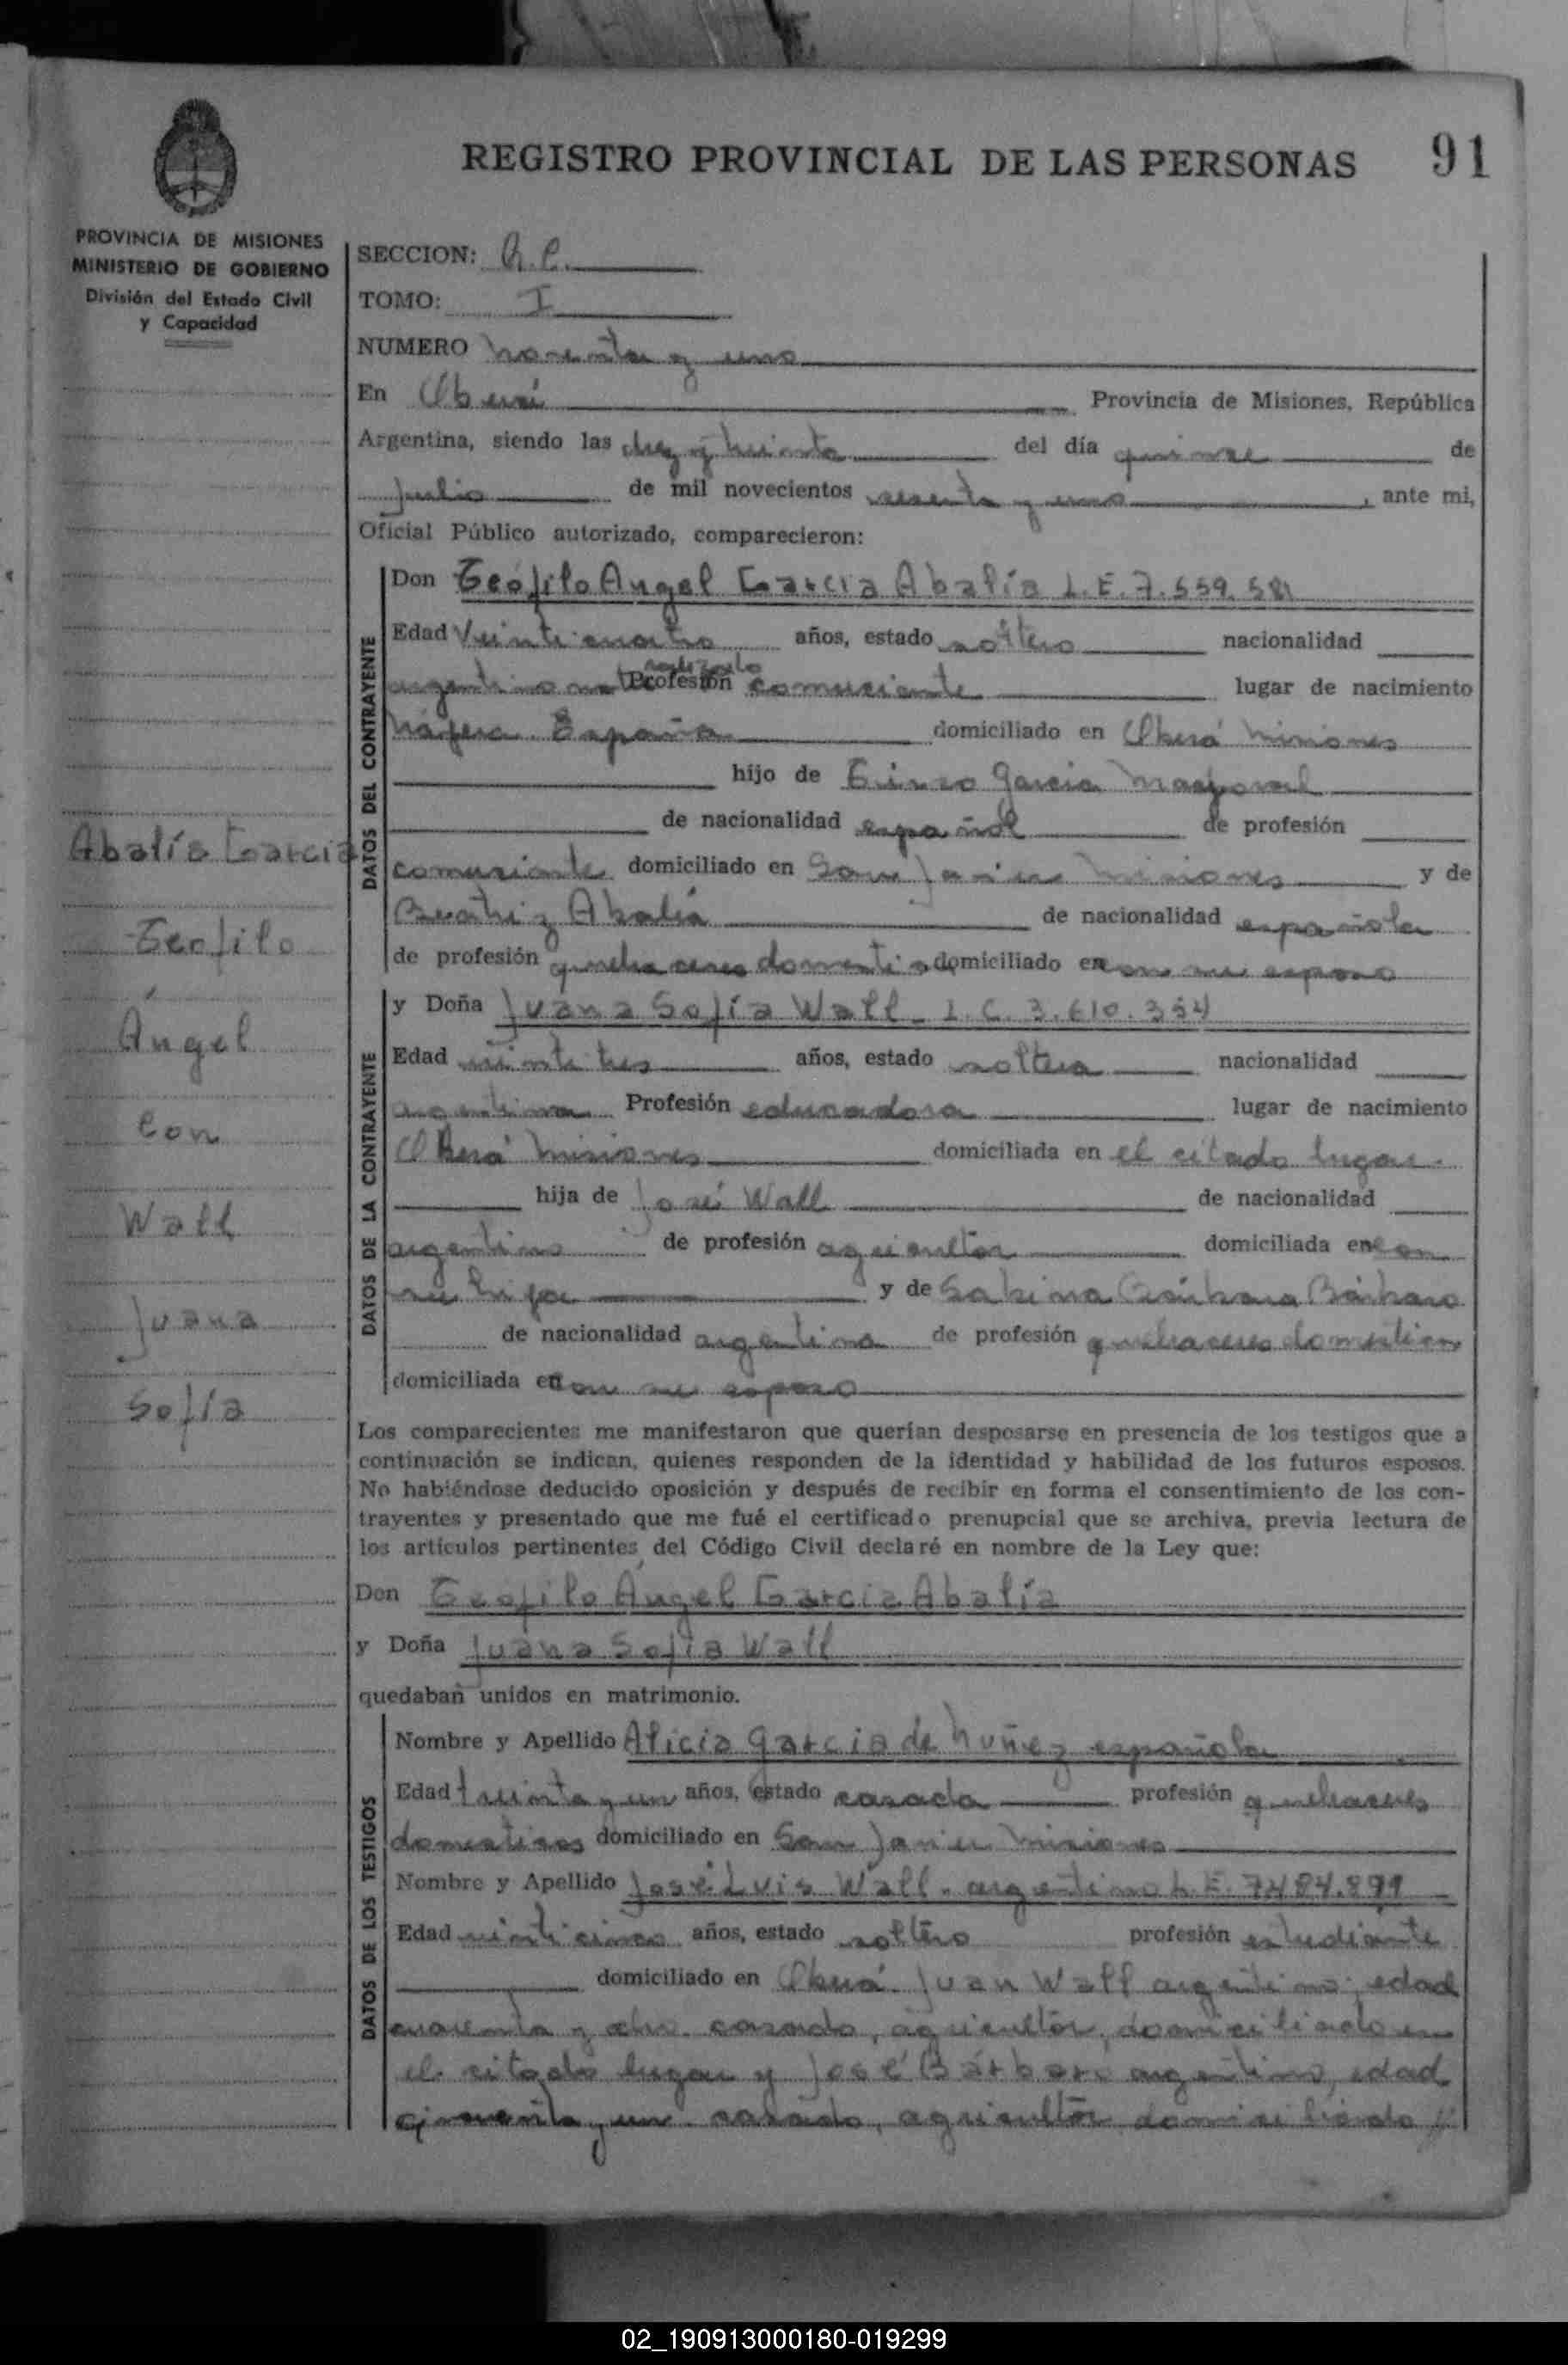 REGISTRO PROVINCIAL DE LAS PERSONAS 91
PROVINCIA DE MISIONES
MINISTERIO DE GOBIERNO
División del Estado Civil
y Capacidad
Abalía Garcia
Teofilo
Ángel
con
Wall
Juana
Sofía
SECCION:
TOMO: I
NUMERO noventa y uno
En Oberá Provincia de Misiones, República
Argentina, siendo las diez y treinta del día quince de
Julio de mil novecientos sesenta y uno, ante mi,
Oficial Público autorizado, comparecieron:
DATOS DEL CONTRAYENTE
Don Teófilo Angel Garcia Abalía L.E. 7.559.581
Edad Veinticuatro años, estado soltero nacionalidad
argentino naturalizado Profesión comerciante lugar de nacimiento
Nágera España domiciliado en Oberá Misiones
hijo de Garcia
de nacionalidad español de profesión
comerciante domiciliado en San Javier Misiones y de
Beatriz Abalía de nacionalidad española
de profesión quehaceres domestic domiciliado en con su esposo
DATOS DE LA CONTRAYENTE
y Doña Juana Sofía Wall L.C. 3.610.354
Edad veintitres años, estado soltera nacionalidad
argentina Profesión educadora lugar de nacimiento
Oberá Misiones domiciliada en el citado lugar.
hija de José Wall de nacionalidad
argentino de profesión agricultor domiciliada en con
su hija y de Sabina Bárbara Bárbaro
de nacionalidad argentina de profesión quehaceres domesticos
domiciliada en con su esposo
Los comparecientes me manifestaron que querían desposarse en presencia de los testigos que a
continuación se indican, quienes responden de la identidad y habilidad de los futuros esposos.
No habiéndose deducido oposición y después de recibir en forma el consentimiento de los con-
trayentes y presentado que me fué el certificado prenupcial que se archiva, previa lectura de
los artículos pertinentes del Código Civil declaré en nombre de la Ley que:
Don Teofilo Ángel Garcia Abalía
y Doña Juana Sofia Wall
quedaban unidos en matrimonio.
DATOS DE LOS TESTIGOS
Nombre y Apellido Alicia Garcia de Nuñez española
Edad treinta y un años, estado casada profesión quehaceres
domesticos domiciliado en San Javier Misiones
Nombre y Apellido José Luis Wall. argentino L.E. 7484.899
Edad veinticinco años, estado soltero profesión estudiante
domiciliado en Oberá. Juan Wall argentino, edad
cuarenta y ocho. casado, agricultor, domiciliado en
el citado lugar y José Bárbaro argentino, edad
cincuenta y un casado, agricultor domiciliado //
02_190913000180-019299